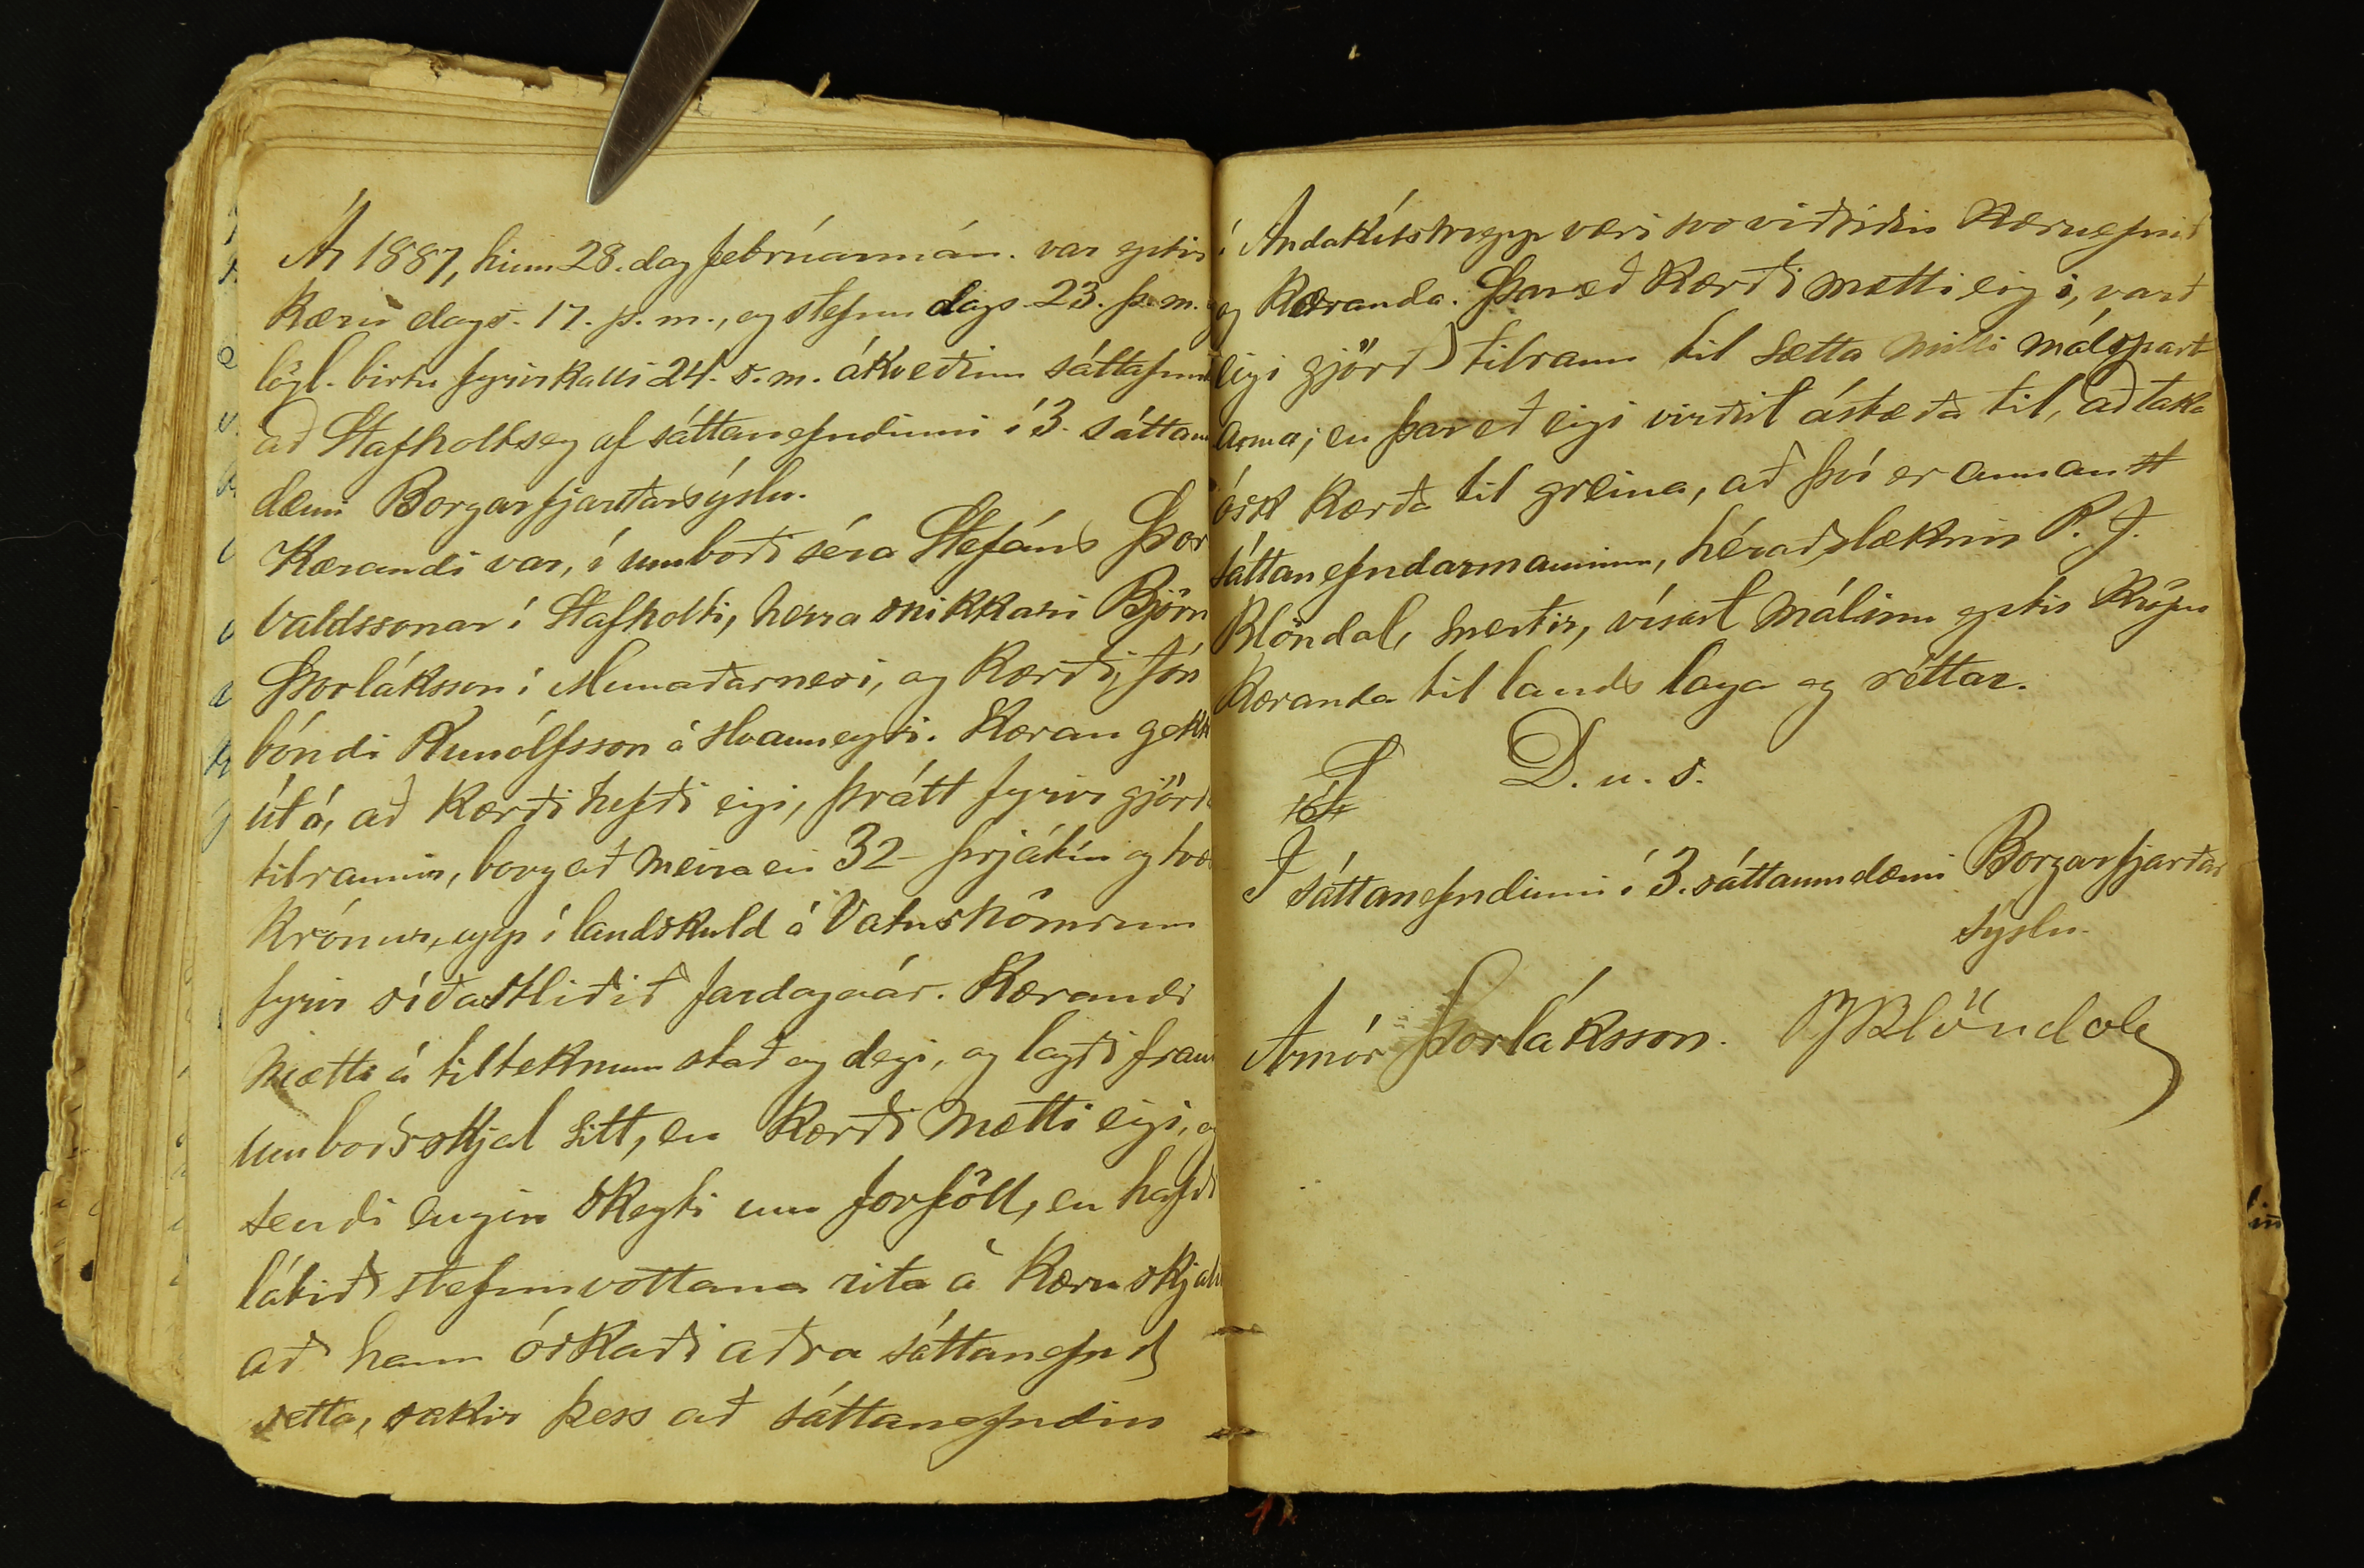 Ár 1887, hinn 28. dag febrúarmán. var eptir
kæru dags. 17. þ. m., og stefnu dags. 23. þ. m.
lögl. birtu fyrirkalli 24. s. m. ákveðinn sáttafund
að Stafholtsey af sáttanefndinni í 3. sáttaum
dæmi Borgarfjarðarsýslu.
Kærandi var, í umboði séra Stefáns Þor
valdssonar í Stafholti, herra snikkari Björn
Þorláksson í Munaðarnesi, og kærði, Jón
bóndi Runólfsson á Hvanneyri. Kæran gekk
út á, að kærði hefði eigi, þrátt fyrir gjörð
tilraunir, borgað meira en 32 - þrjátíu og tvær
krónur, upp í landskuld á Vatnshömrum
fyrir síðastliðið fardagaár. Kærandi
mætti á tilteknum stað og degi, og lagði fram
umboðsskjal sitt, en kærði mætti eigi, og
sendi engin skeyti um forföll, en hafði
látið stefnuvottana rita á kæruskjal
að hann óskaði aðra sáttanefnd
setta, sakir þess að sáttanefndin
í Andakílshrepp væri svo viðriðin kæruefnið
og kæranda. Þareð kærði mætti eigi, varð
eigi gjörð tilraun til sætta milli málspart
anna; en þareð eigi virðist ástæða til, að taka
ósk kærða til greina, að því er annan
sáttanefndarmanninn, héraðslæknir P. J.
Blöndal, snertir, vísast málinu eptir kröfu
kæranda til lands laga og réttar.
D. u. s.
Í sáttanefndinni í 3. sáttaumdæmi Borgarfjarðar
sýslu.
Arnór Þorláksson. PJBlöndal